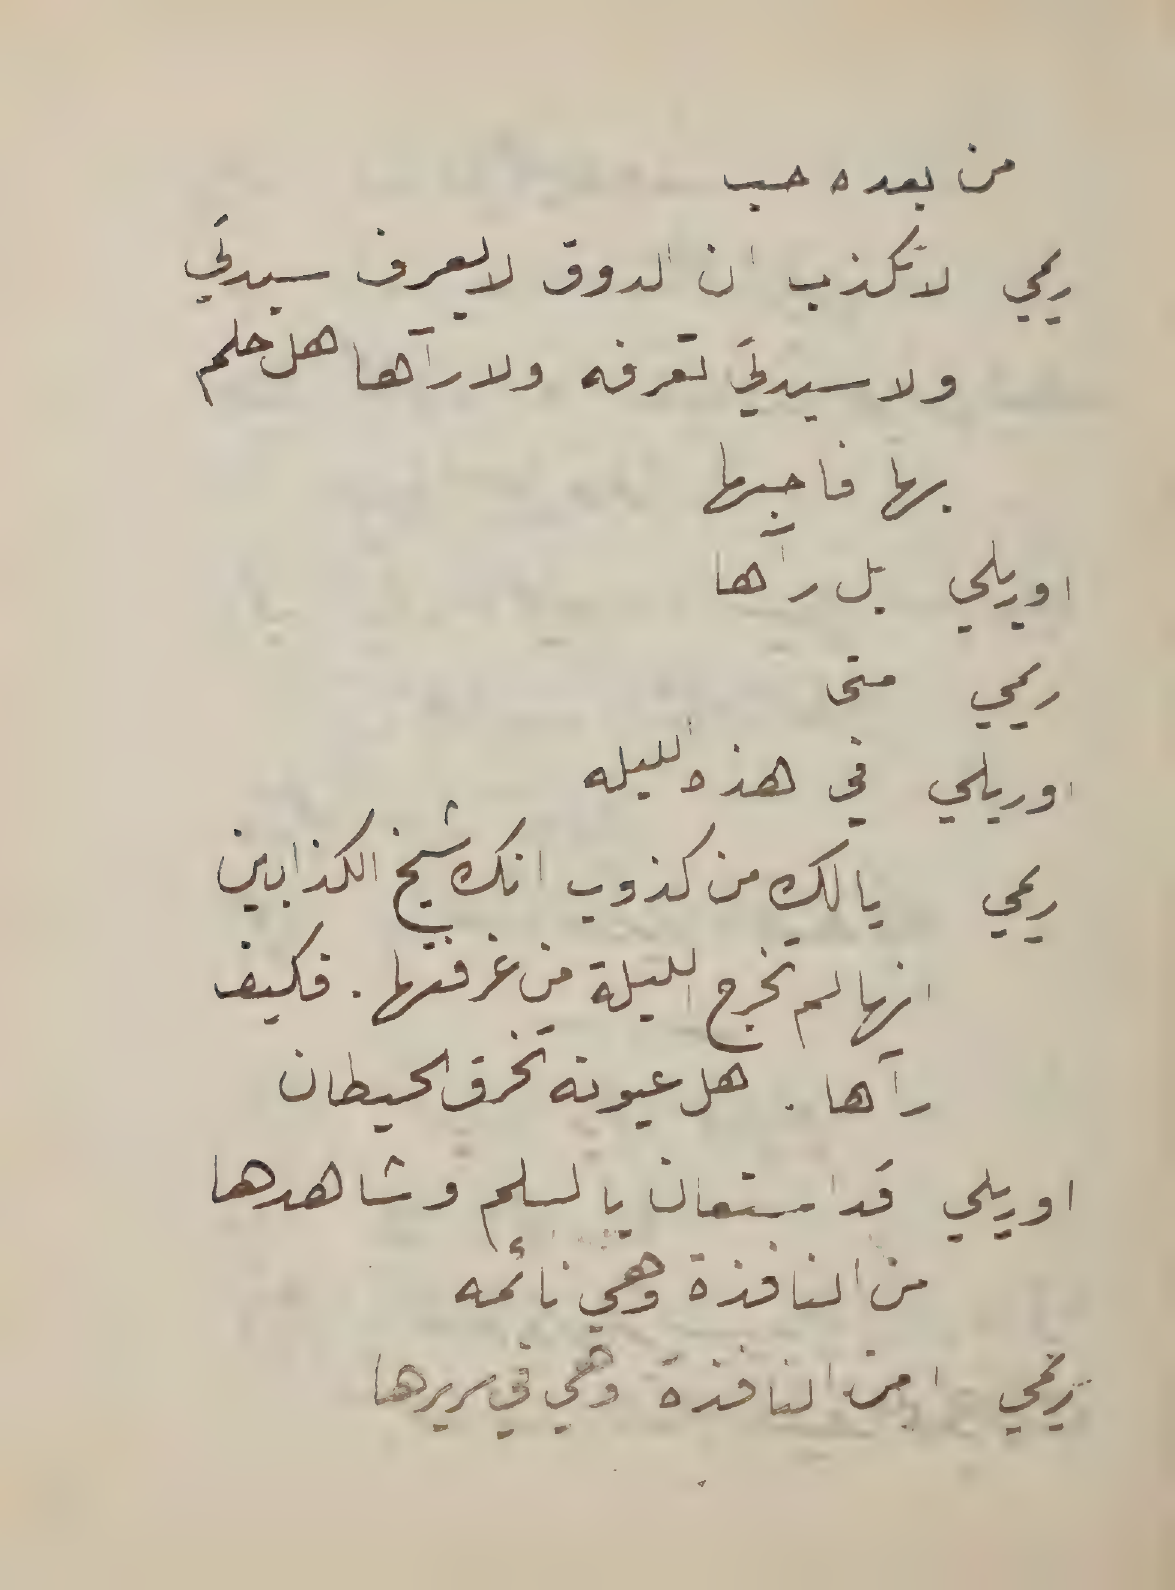 من بعده حب
ريمي لا تكذب ان الدوق لا يعرف سيدتي
ولا سيدتي تعرفه ولا رآها هل حلم
بها فاحبها
اوريلي بل رآها
ريمي متى
اوريلي في هذه الليله
ريمي يا لك من كذوب انك شيخ الكذابين
انها لم تخرج الليلة من غرفتها . فكيف
رآها . هل عيونه تخرق الحيطان
اوريلي قد استعان بالسلم وشاهدها
من النافذة وهي نائمه
ريمي امن النافذة وهي في سريرها